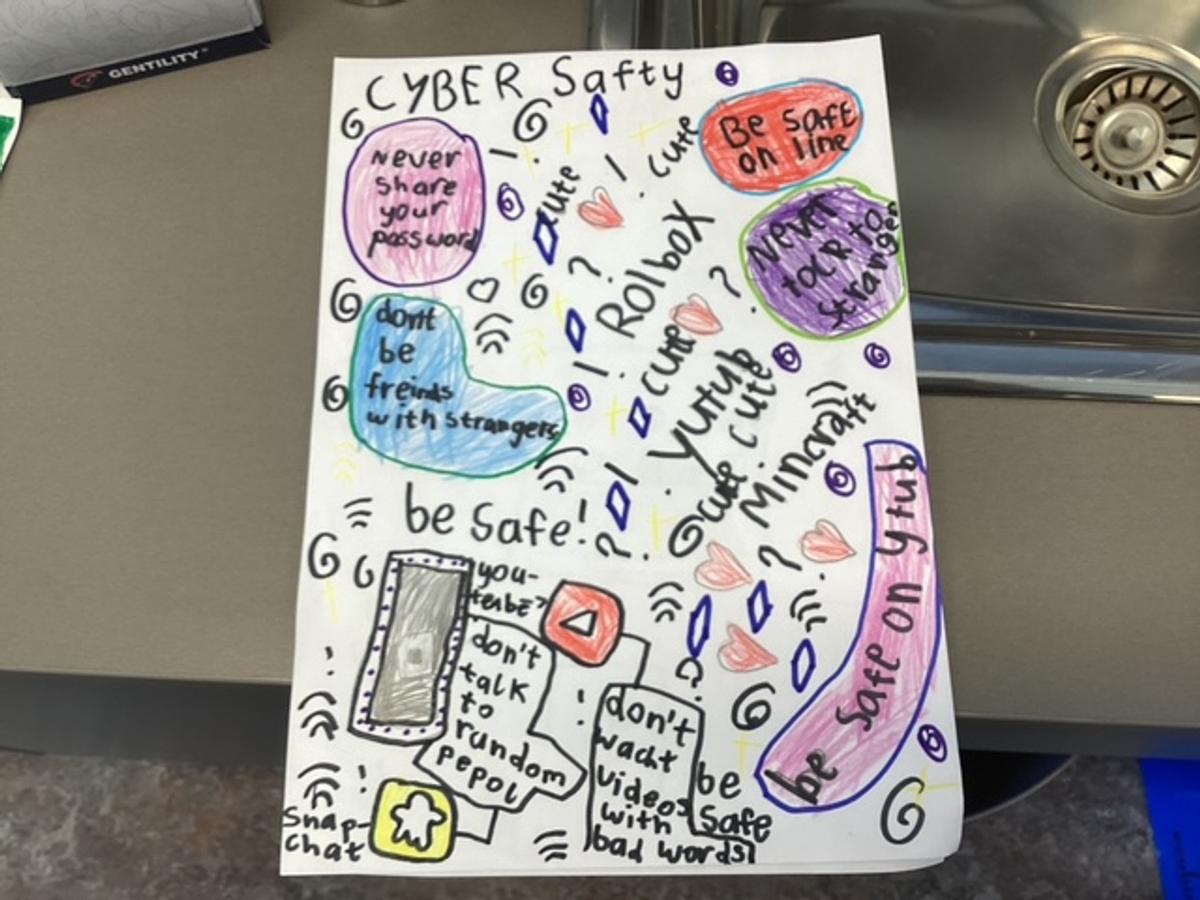 GENTILITY
CYBER Safty
Never
share
your
password
Be safe
on line
cute
cute
Never
to
strangers
Rolbox
dont
be
freinds
with strangers
cute
yutub
cute
cute
Mincraft
be safe!
be safe on ytub
you-
don't
talk
to
rundom
pepol
don't
wacht
videos
with
bad words!
be
safe
Snap-
chat